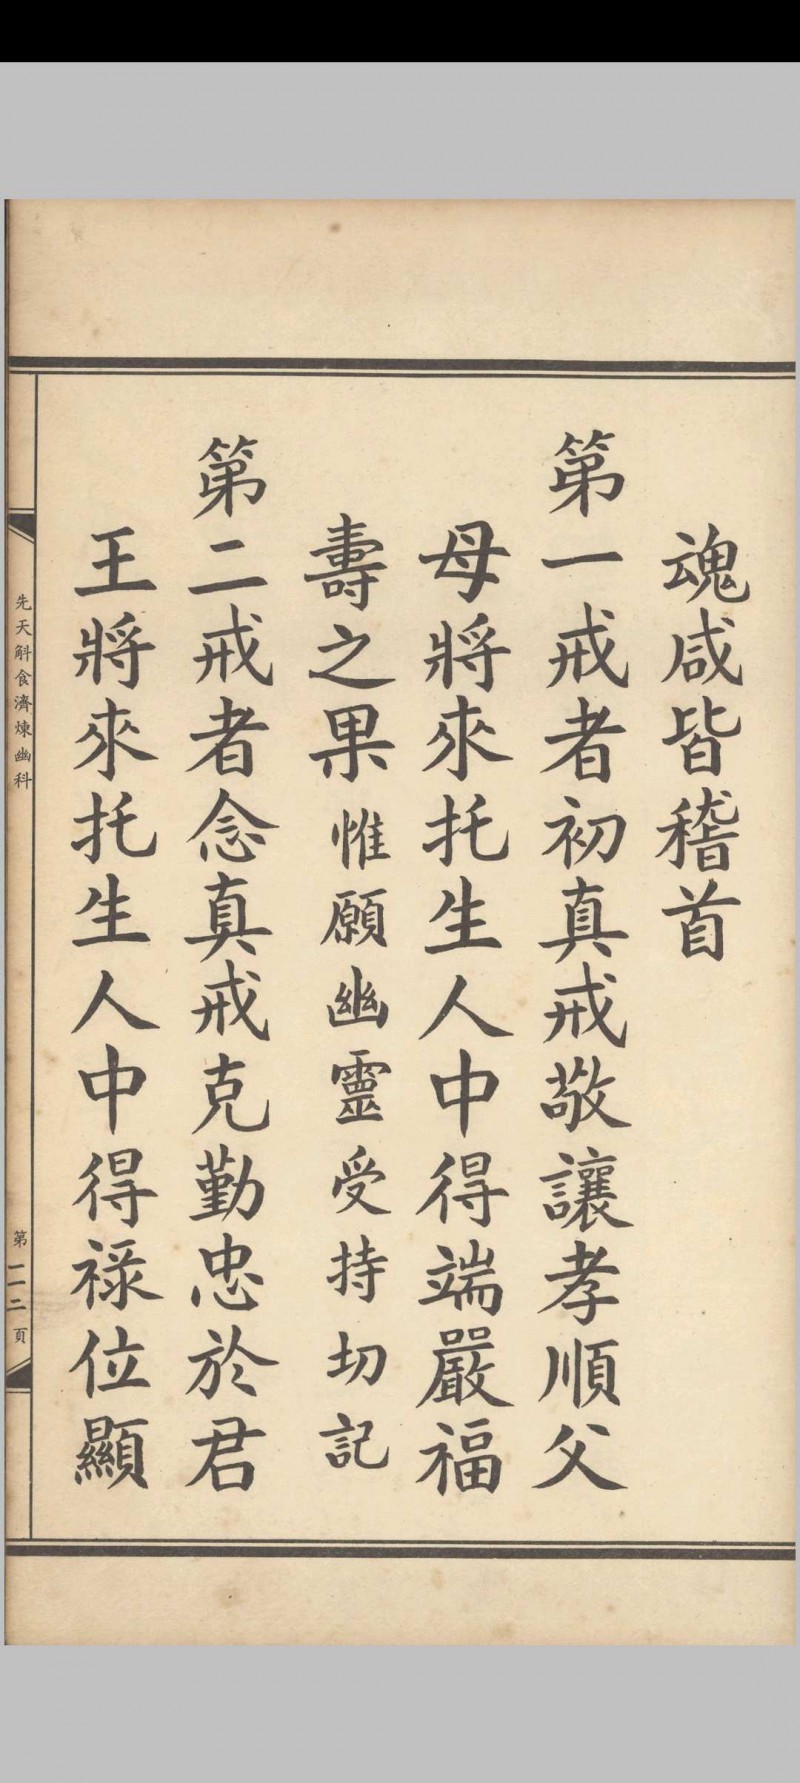 魂咸皆稽首
第一戒者初真戒敬讓孝順父
母將來托生人中得端嚴福
壽之果惟願幽靈受持切記
第二戒者念真戒克勤忠於君
王將來托生人中得祿位顯
先天斛食濟煉幽科
第一二頁